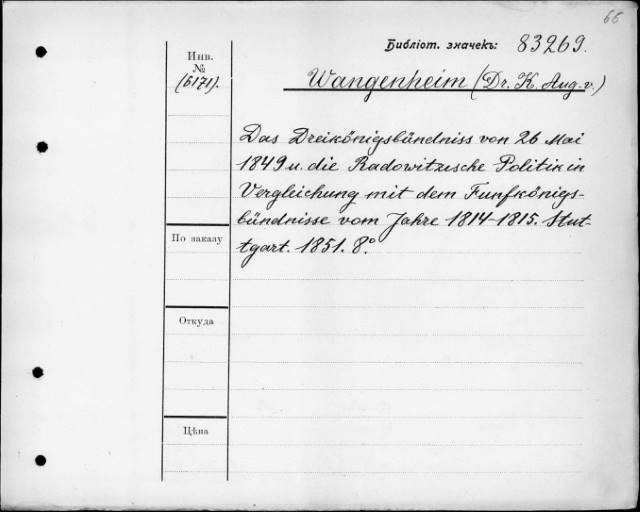 66
Библіот. значекъ: 83269.
Инв.
№
(6171).
Wangenheim (Dr. K. Aug. v.)
Das Dreikönigsbündniss von 26 Mai
1849 u. die Radowitzische Politik in
Vergleichung mit dem Funfkönigs-
bündnisse vom Jahre 1814-1815. Stut-
tgart. 1851. 8.°
По заказу
Откуда
Цѣна